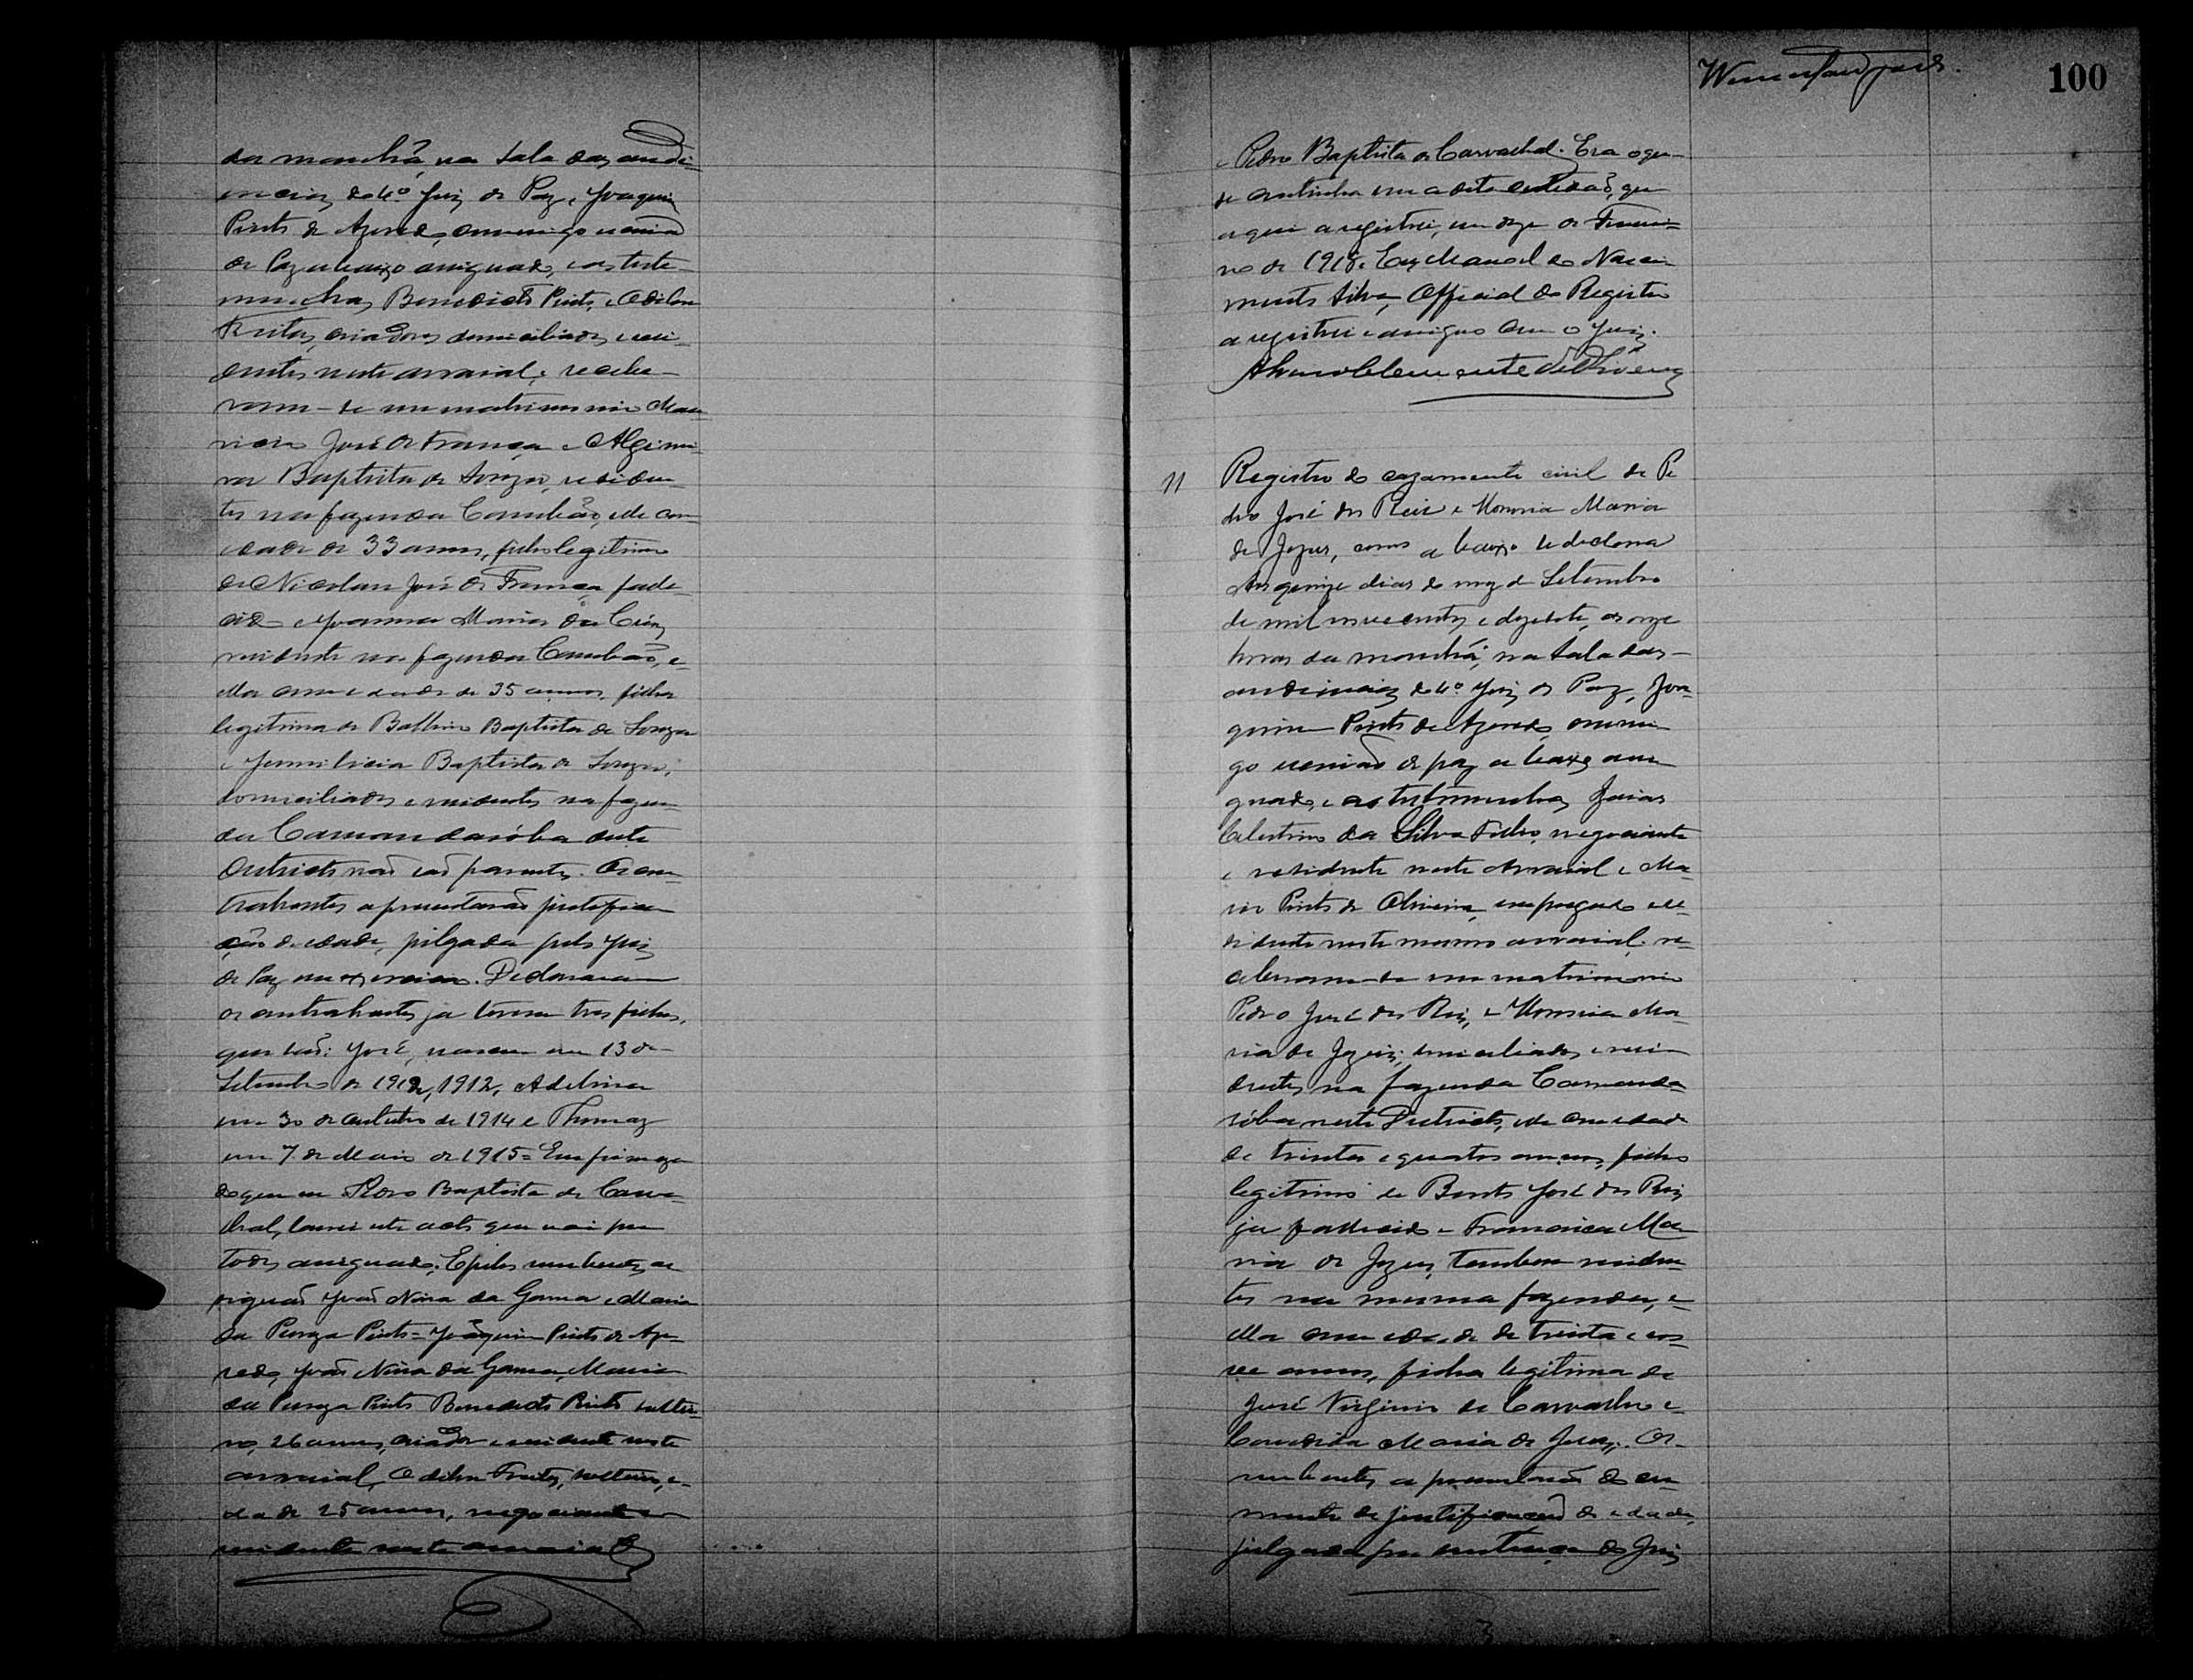 da manhã, na sala das audi-
encias do 4º Juiz de Paz, Joaquim
Pinto de Azevedo, commigo escrivão
de Paz abaixo assignado, e as teste-
munhas Benedicto Pinto, e Odilon
Freitas, criadores domiciliados e resi-
dentes neste arraial; recebe-
ram-se em matrimonio Mau
ricio José de França e Algimi
ra Baptista de Souza, residen-
tes na fazenda Cambão, elle com
idade de 33 annos, filho legitimo
de Nicolau José de França, falle-
cido e Joanna Maria da Cruz
residente na fazenda Cambão, e
ella com idade de 35 annos, filha
legitima de Balbino Baptista de Souza
e Baptista de Souza,
domiciliados e residentes na fazen-
da Camandaróba deste
Districto não são parentes. Os con-
trahentes apresentarão justifica-
ção de idade, julgada pelo Juiz
de Paz em exercicio. Declararam
os contrahentes já terem tres filhos,
que são: José, nasceu em 13 de
Setembro de 1912, 1912, Adelina
em 30 de outubro de 1914 e Thomaz
em 7 de Maio de 1915= Em firmeza
do que eu Pedro Baptista de Carva-
lhal, lavrei este acto que vai por
todos assignado. E pelos nubentes, as
signão João Nina da Gama e Maria
da Pureza Pinto= Joaquim Pinto de Aze-
vedo, João Nina da Gama, Maria
da Pureza Pinto Benedicto Pinto soltei-
ro, 26 annos, criador e residente neste
arraial, Odilon Freitas, solteiro, i-
dade 25 annos, negociante e
residente neste arraial
100
e Pedro Baptista de Carvalhal. Era o que
se continha em a dita certidão, que
aqui a registrei, em doze de Feverei-
ro de 1918. Eu, Manoel do Nasci-
mento Silva, Official do Registro
a registrei e assigno com o Juiz.
11 Registro do cazamento civil de Pe
dro José dos Reis e Honoria Maria
de Jezus, como a baixo se declara
Aos quinze dias do mez de Setembro
de mil novecentos e dezesete, as onze
horas da manhã, na sala das
audiencias do 4º Juiz de Paz, Joa-
quim Pinto de Azevedo, commi-
go escrivão de paz a baixo assi-
gnado, e as testemunhas
Celestino da Silva Filho, negociante
e residente neste Arraial e Ma-
rio Pinto de Oliveira, empregado e re-
sidente neste mesmo arraial; re-
ceberam-se em matrimonio
Pedro José dos Reis, e Honoria Ma-
ria de Jezus, domiciliados e resi-
dentes na fazenda Camanda-
róba neste Districto, elle com idade
de trinta e quatro annos, filho
legitimo de Bento José dos Reis
já fallecido e Francisca Ma-
ria de Jezus, tambem residen-
tes na mesma fazenda, e
ella com idade de trinta e no-
ve annos, filha legitima de
José Virginio de Carvalho e
Candida Maria de Jesus. Os
nubentes apresentarão do cu-
mento de justificação de idade,
julgada por sentença do Juiz